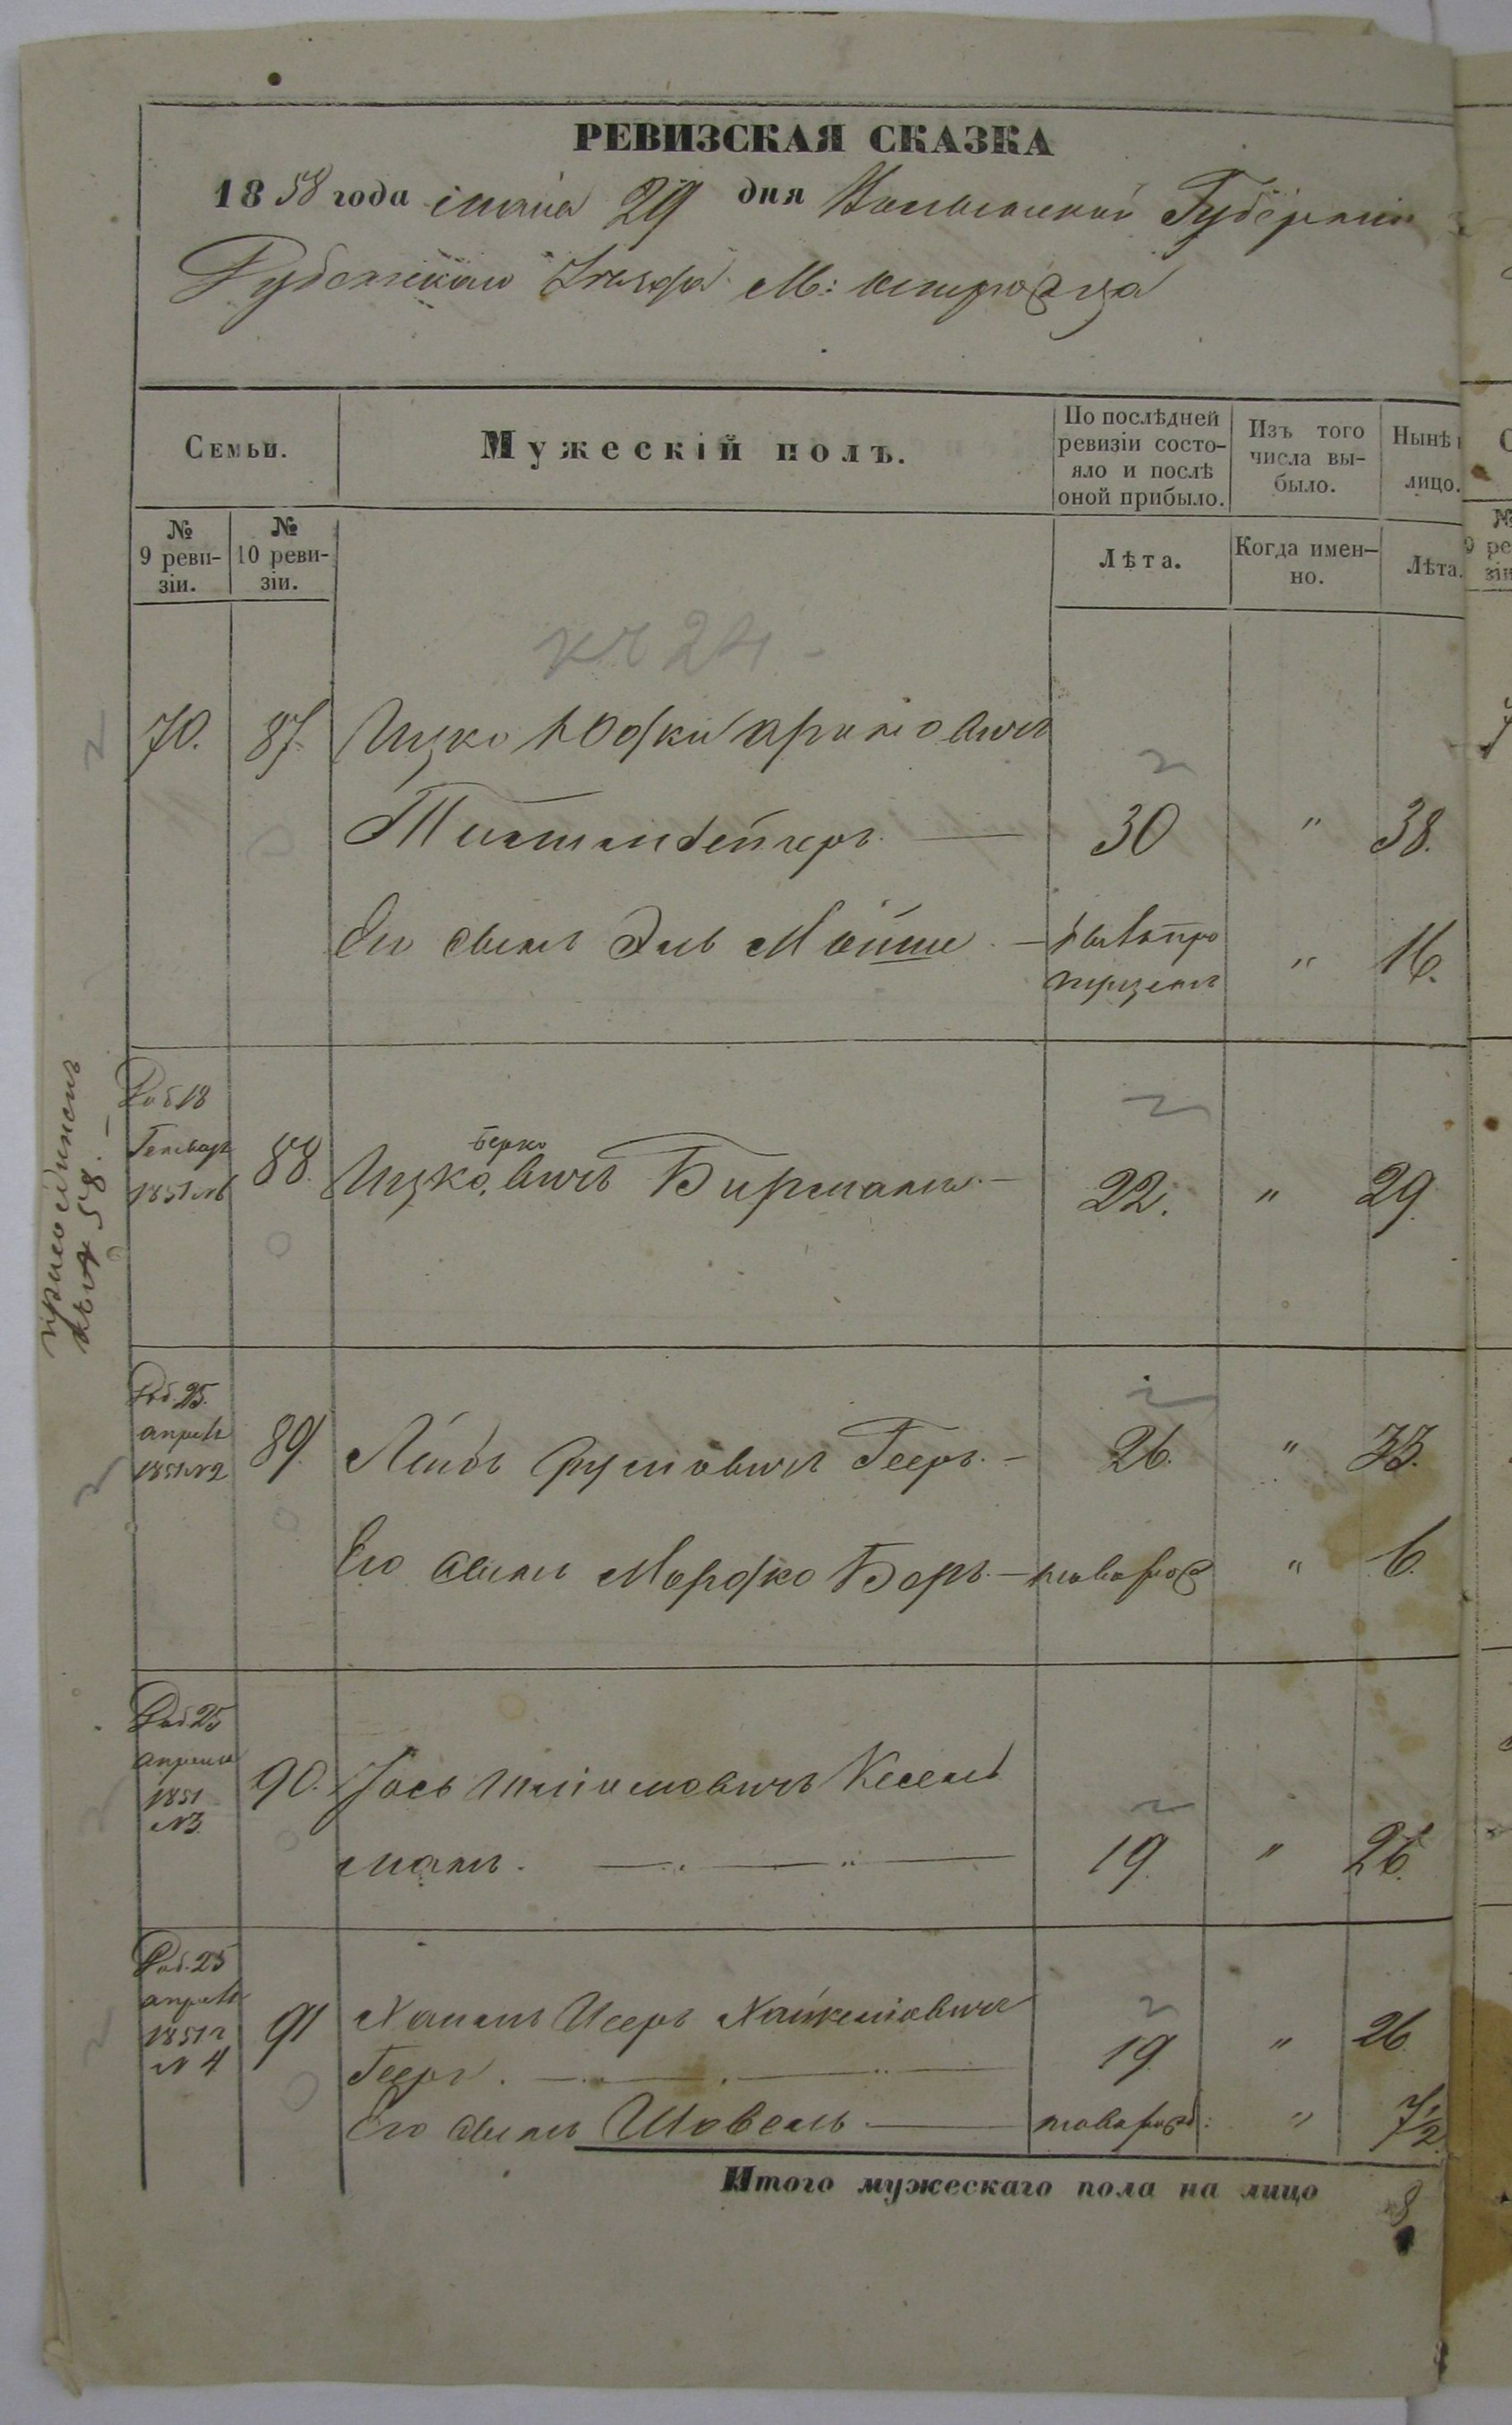 РЕВИЗСКАЯ СКАЗКА
1858 года іюня 29 дня Волынской Губерніи
Дубенскаго Уѣзда М:
Семьи.
Мужескій полъ.
По послѣдней ревизіи состо-
яло и послѣ
оной прибыло.
Изъ того
числа вы-
было.
Нынѣ
лицо.
№
9 реви-
зіи.
№
10 реви-
зіи.
Лѣта.
Когда имен-
но.
Лѣта.
24
70. 87. Ицко Юдка
30 " 38.
Его сынъ Эль Мойше " 16.
Доб 18
Генваря
1851 №6
88. Берко
Ицковичъ Бирманъ 22. " 29.
№ 58.
Доб. 25.
апрѣля
1851 №2
89. Лейбъ Фроимовичъ Гееръ. 26. " 33.
Его сынъ Мордко Беръ новорожд " 6.
Доб 25
апрѣля
1851
№3
90. Іось Кесель
манъ. 19. " 26.
Доб. 25
апрѣля
1851 г
№ 4
91 Исеръ
Гееръ. 19. " 26.
Его сынъ Шовель новорожд: " 7/12.
Итого мужескаго пола на лицо 8